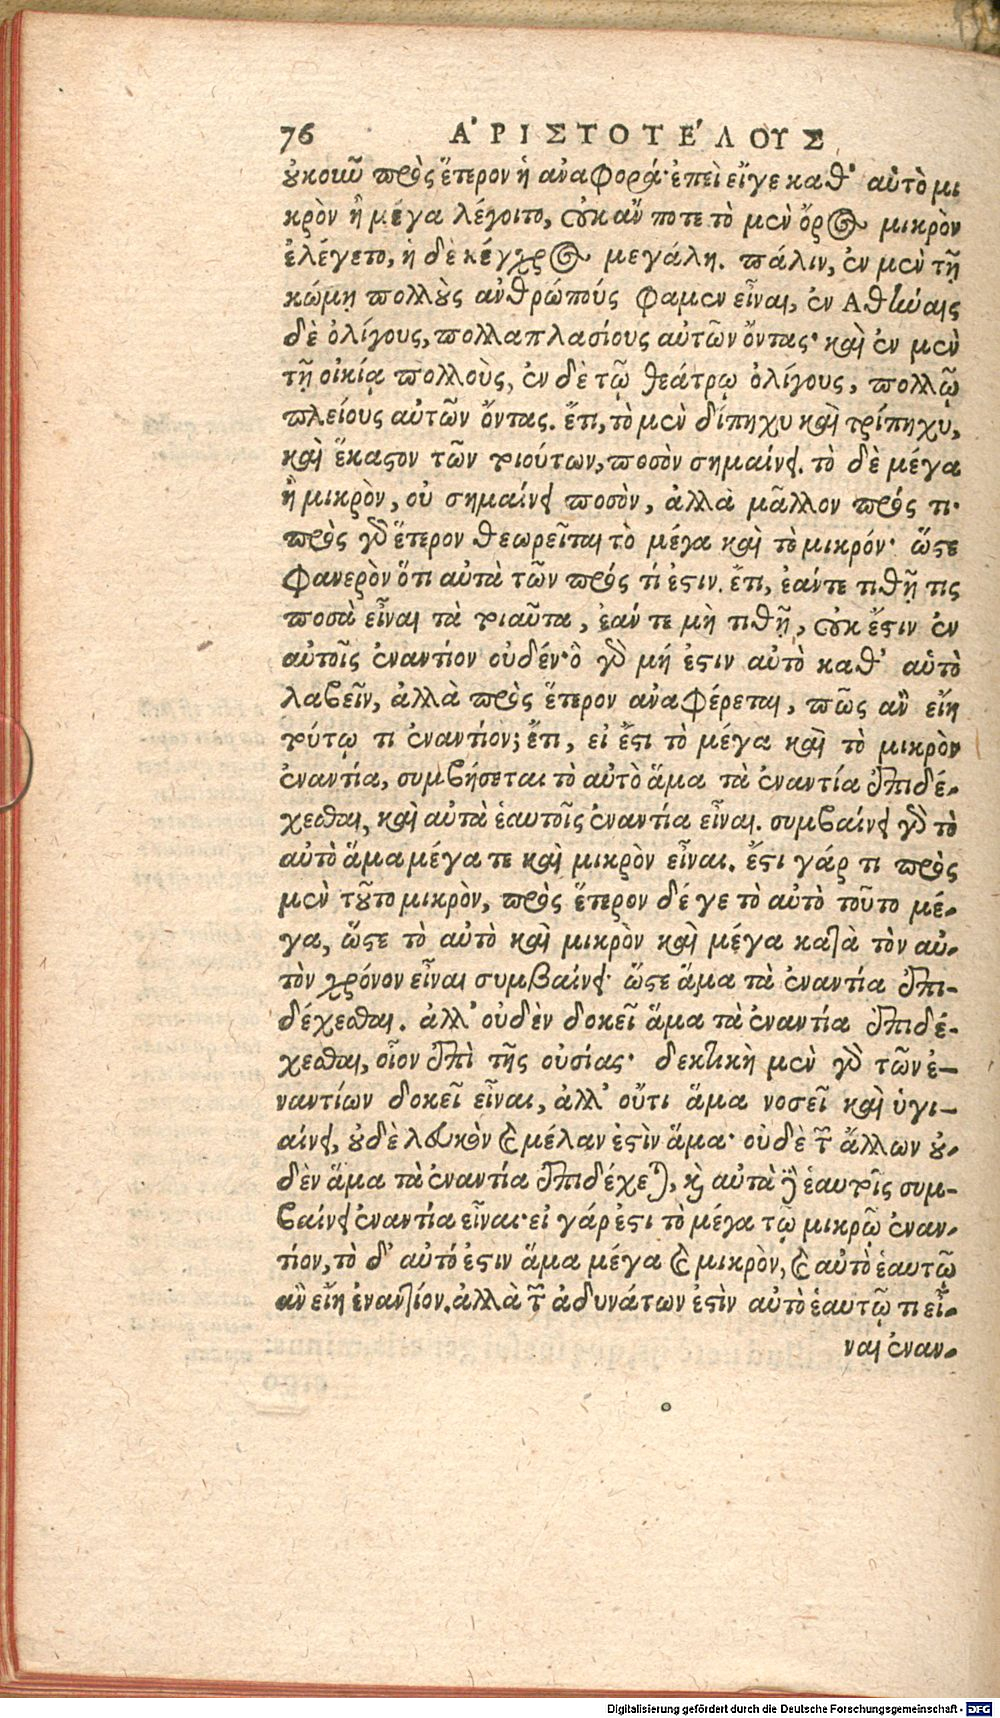 76 ἈΡΙΣΤΟΤΈΛΟΥΣ
οὐκοῦν πρὸς ἕτερον ἡ ἀναφορά· ἐπεὶ εἴγε καθ’ αὑτὸ μι
κρὸν ἢ μέγα λέγοιτο, οὐκ ἄν ποτε τὸ μὲν ὄρος μικρὸν
ἐλέγετο, ἡ δὲ κέγχρος μεγάλη. πάλιν, ἐν μὲν τῇ
κώμῃ πολλοὺς ἀνθρώπούς φαμεν εἶναι, ἐν Ἀθήναις
δὲ ὀλίγους, πολλαπλασίους αὐτῶν ὄντας· καὶ ἐν μὲν
τῇ οἰκίᾳ πολλοὺς, ἐν δὲ τῷ θεάτρῳ ὀλίγους, πολλῷ
πλείους αὐτῶν ὄντας. ἔτι, τὸ μὲν δίπηχυ καὶ τρίπηχυ,
καὶ ἕκαστον τῶν τοιούτων, ποσὸν σημαίνει. τὸ δὲ μέγα
ἢ μικρὸν, οὐ σημαίνει ποσὸν, ἀλλὰ μᾶλλον πρός τι·
πρὸς γὰρ ἕτερον θεωρεῖται τὸ μέγα καὶ τὸ μικρόν· ὥστε
φανερὸν ὅτι αὐτὰ τῶν πρός τί ἐστιν. ἔτι, ἐάντε τιθῇ τις
ποσὰ εἶναι τὰ τοιαῦτα, ἐάν τε μὴ τιθῇ, οὐκ ἔστιν ἐν
αὐτοῖς ἐναντίον οὐδέν· ὃ γὰρ μή ἐστιν αὐτὸ καθ’ αὑτὸ
λαβεῖν, ἀλλὰ πρὸς ἕτερον ἀναφέρεται, πῶς ἂν εἴη
τούτῳ τι ἐναντίον; ἔτι, εἰ ἔστι τὸ μέγα καὶ τὸ μικρὸν
ἐναντία, συμβήσεται τὸ αὐτὸ ἅμα τὰ ἐναντία ἐπιδέ-
χεσθαι, καὶ αὐτὰ ἑαυτοῖς ἐναντία εἶναι. συμβαίνει γὰρ τὸ
αὐτὸ ἅμα μέγα τε καὶ μικρὸν εἶναι. ἔστι γάρ τι πρὸς
μὲν τοῦτο μικρὸν, πρὸς ἕτερον δέ γε τὸ αὐτὸ τοῦτο μέ-
γα, ὥστε τὸ αὐτὸ καὶ μικρὸν καὶ μέγα κατὰ τὸν αὐ-
τὸν χρόνον εἶναι συμβαίνει· ὥστε ἅμα τὰ ἐναντία ἐπι-
δέχεσθαι. ἀλλ’ οὐδὲν δοκεῖ ἅμα τὰ ἐναντία ἐπιδέ-
χεσθαι, οἷον ἐπὶ τῆς οὐσίας· δεκτικὴ μὲν γὰρ τῶν ἐ-
ναντίων δοκεῖ εἶναι, ἀλλ’ οὔτι ἅμα νοσεῖ καὶ ὑγι-
αίνει, οὐδὲ λευκὸν καὶ μέλαν ἐστὶν ἅμα· οὐδὲ τῶν ἄλλων οὐ-
δὲν ἅμα τὰ ἐναντία ἐπιδέχεται, καὶ αὐτὰ δὲ ἑαυτοῖς συμ-
βαίνει ἐναντία εἶναι· εἰ γάρ ἐστι τὸ μέγα τῷ μικρῷ ἐναν-
τίον, τὸ δ’ αὐτό ἐστιν ἅμα μέγα καὶ μικρὸν, καὶ αὐτὸ ἑαυτῷ
ἂν εἴη ἐναντίον. ἀλλὰ τῶν ἀδυνάτων ἐστὶν αὐτὸ ἑαυτῷ τι εἶ-
ναι ἐναν-
Digitalisierung gefördert durch die Deutsche Forschungsgemeinschaft - DFG